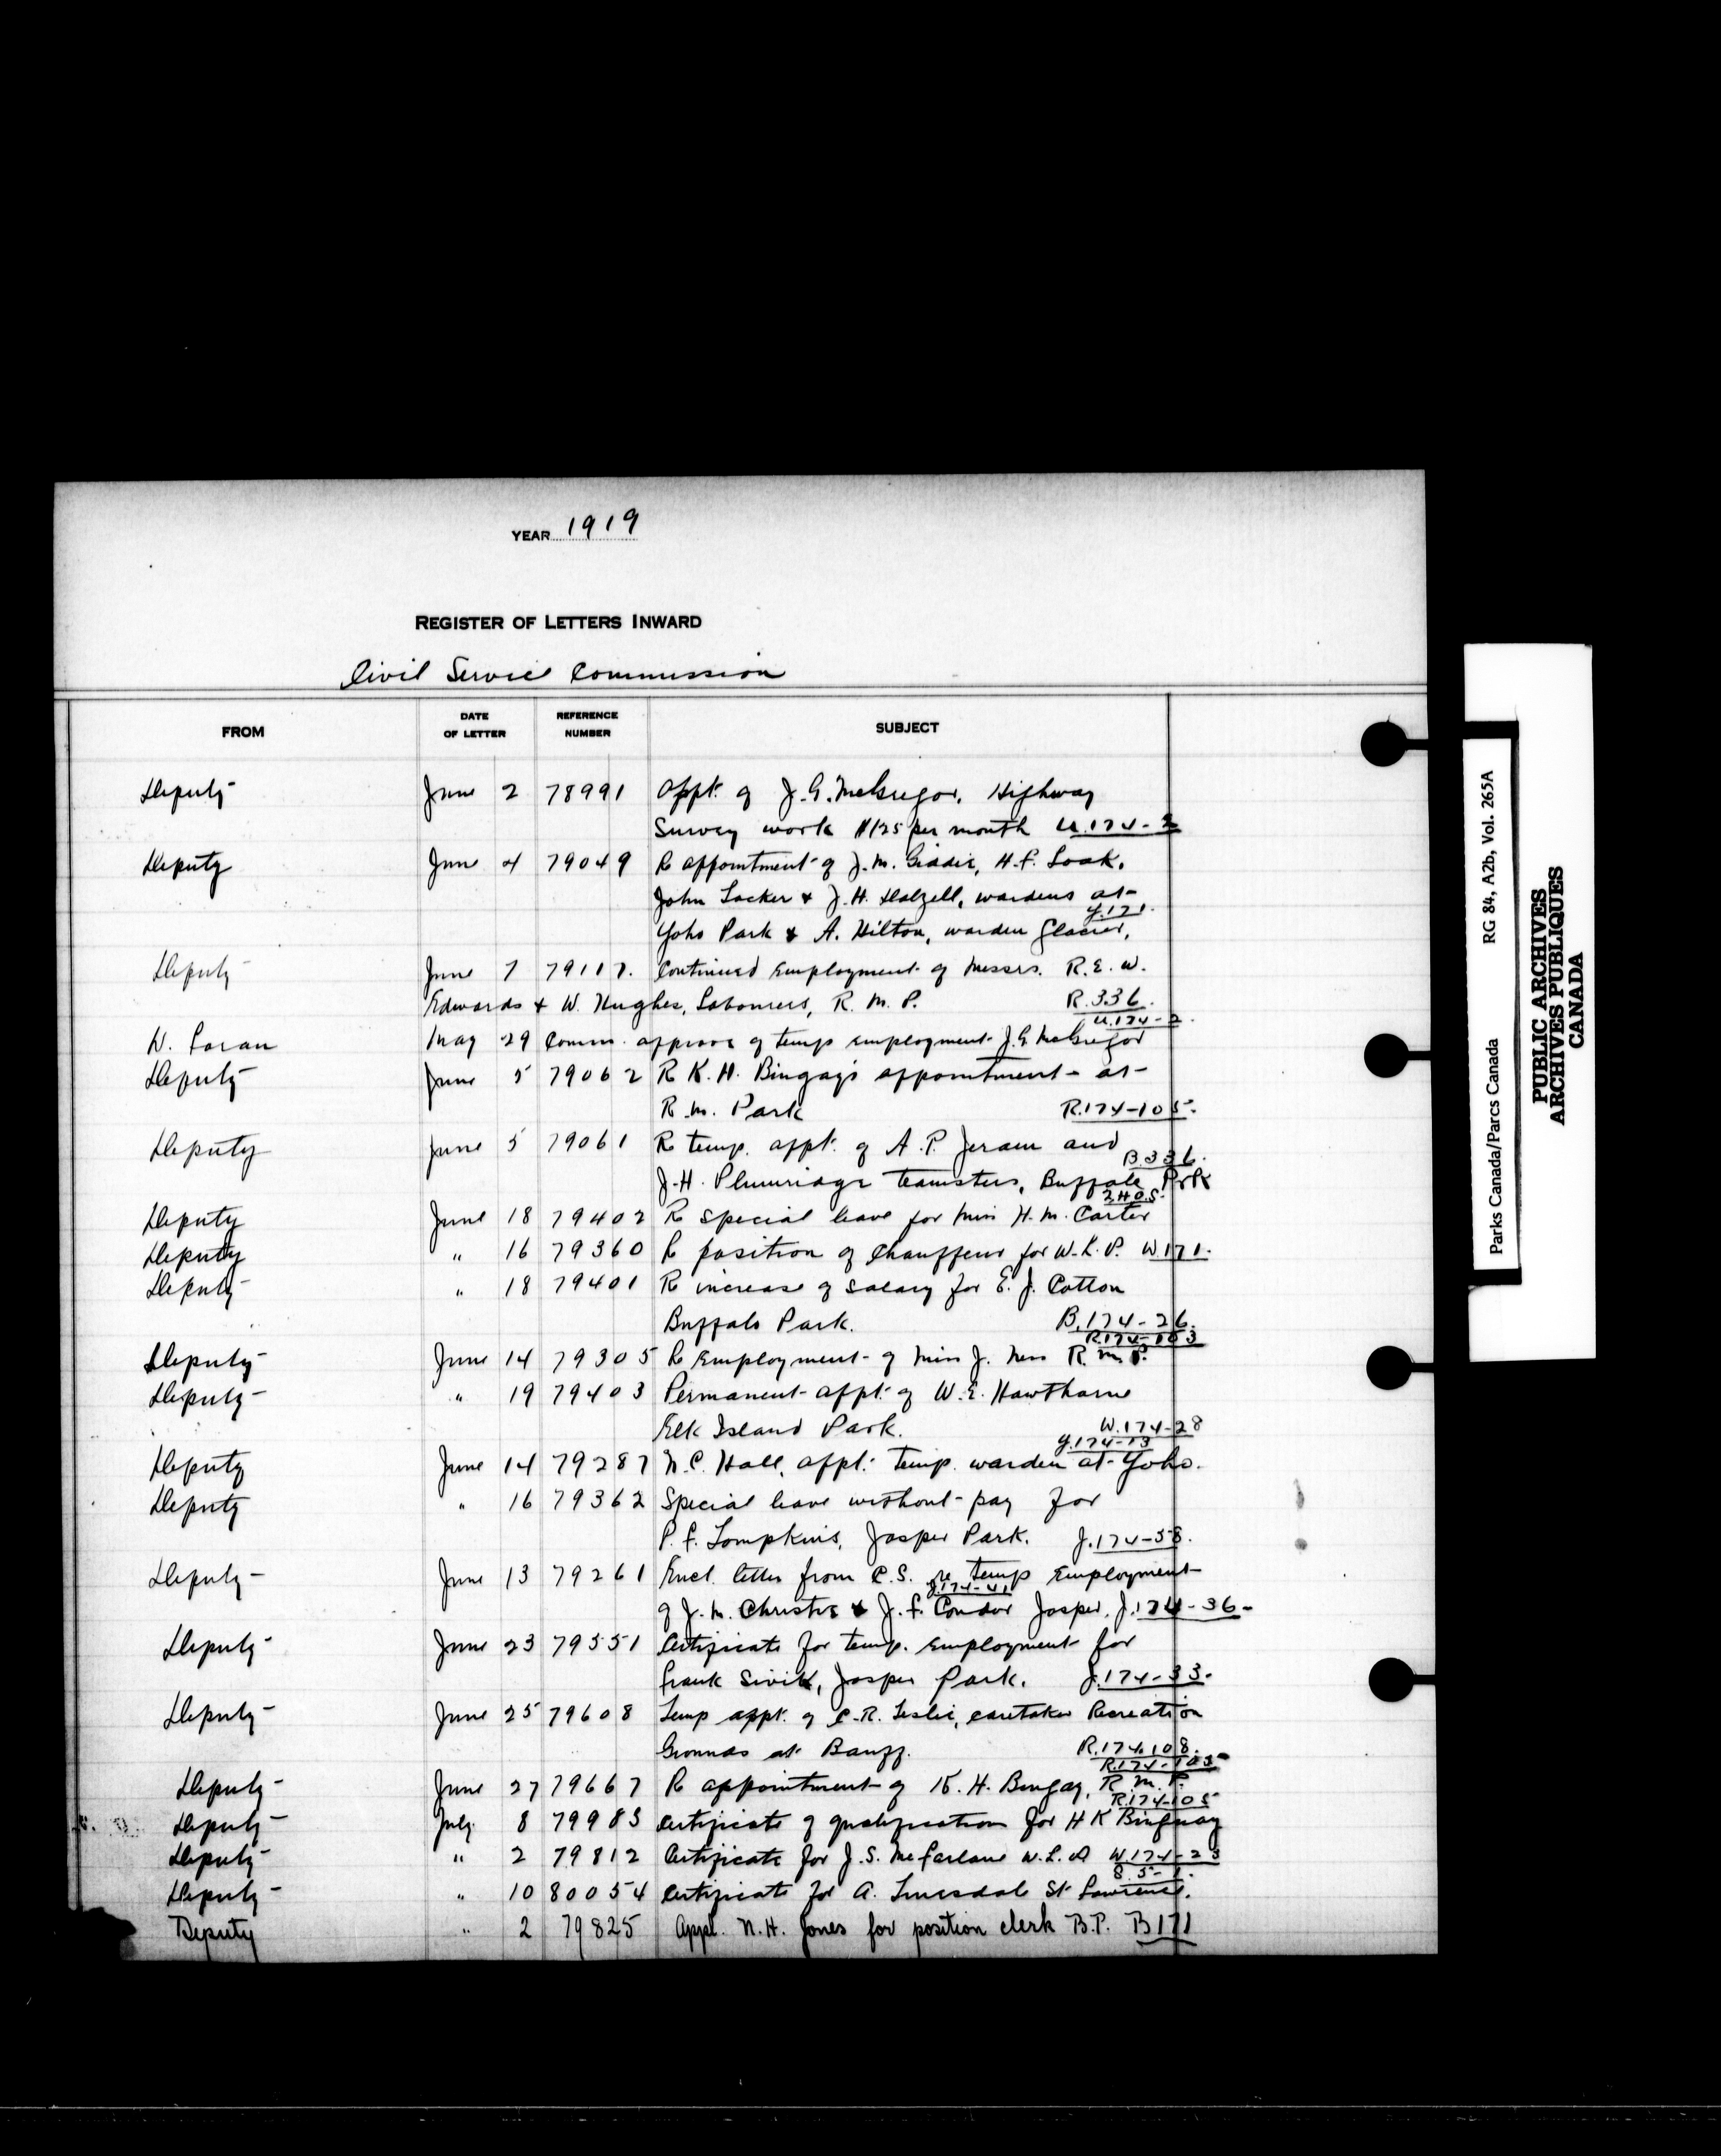 YEAR 1919
REGISTER OF LETTERS INWARD
Civil Service Commission
FROM DATE OF LETTER REFERENCE NUMBER SUBJECT
Deputy June 2 78991 Appt. of J.G. McGregor, Highway
Survey work $125 per month U.174-2
Deputy June 4 79049 R appointment of J.M. Giddie, H.F. Look,
John Tocker & J.H. Dalzell, wardens at
Y.171.
Yoho Park & A. Hilton, warden Glacier,
Deputy June 7 79117. Continued Employment of Messrs. R.E.W.
Edwards & W. Hughes, Labourers, R.M.P. R.336.
U.174-2.
W. Foran May 29 Comm. approve of temp employment J.G. McGregor
Deputy June 5 79062 R K.H. Bingay's appointment at
R.M. Park R.174-105.
Deputy June 5 79061 R temp. appt. of A.P. Jeram and
B.336.
J.H. Plumridge teamsters, Buffalo Prk
2.H.O.S.
Deputy June 18 79402 R special leave for Miss H.M. Carter
Deputy " 16 79360 R position of Chauffeur for W.L.P. W.171.
Deputy " 18 79401 R increase of salary for E.J. Cotton
Buffalo Park. B.174-26.
R.174-103
Deputy June 14 79305 R Employment of Miss J. Ness R.M.P.
Deputy " 19 79403 Permanent appt. of W.E. Hawthorne
Elk Island Park. W.174-28
Y.174-13
Deputy June 14 79287 N.C. Hall, appt. temp. warden at Yoho.
Deputy " 16 79362 Special leave without pay for
P.F. Tompkins, Jasper Park. J.174-58.
Deputy June 13 79261 Encl. letter from C.S. re temp Employment
J.174-41
of J.M. Christie & J.F. Condor Jasper, J.174-36-
Deputy June 23 79551 Certificate for temp. employment for
Frank Sivik, Jasper Park. J.174-33.
Deputy June 25 79608 Temp appt. of C.R. Leslie, caretaker Recreation
Grounds at Banff. R.174.108.
R.174-105
Deputy June 27 79667 R appointment of K.H. Bingay, R.M.P.
R.174-105
Deputy July 8 79983 Certificate of qualification for H K Binguay
Deputy " 2 79812 Certificate for J.S. McFarlane W.L.P W.174-23
8.5-1.
Deputy " 10 80054 Certificate for A. Truesdale St Lawrence.
Deputy " 2 79825 Appl. N.H. Jones for position clerk B.P. B171
Parks Canada/Parcs Canada RG 84, A2b, Vol. 265A
PUBLIC ARCHIVES
ARCHIVES PUBLIQUES
CANADA